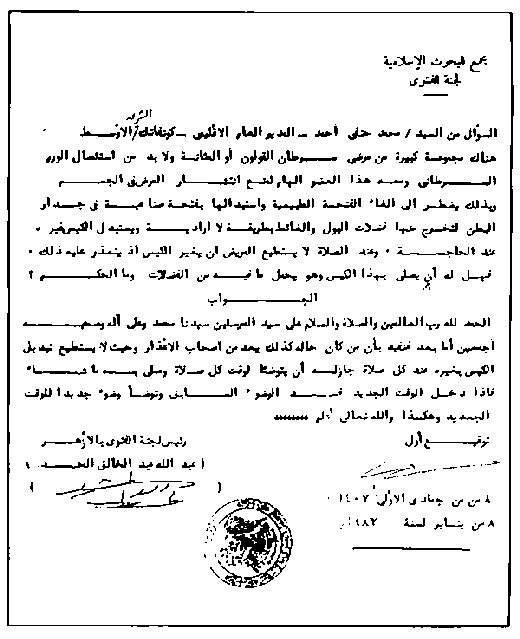 مجمع البحوث الإسلامية
لجنة الفتوى
الشرق
السؤال من السيد / محمد حنفى أحمد ــ المدير العام الاقليمى ــ كونفاتك / الأوسط
هناك مجموعة كبيرة من مرضى سرطان القولون أو المثانة ولا بد من استئصال الورم
السرطانى ومعه هذا العضو الهام لمنع انتشار المرض فى الجسم
وبذلك يضطر الى الغاء الفتحة الطبيعية واستبدالها بفتحة صناعية فى جدار
البطن لتخرج منها فضلات البول والغائط بطريقة لا ارادية ويستبدل الكيس بغيره
عند الحاجة ٠ وعند الصلاة لا يستطيع المريض ان يغير الكيس اذ يتعذر عليه ذلك ٠
فهل له أن يصلى بهذا الكيس وهو يحمل ما فيه من الفضلات وما الحكم ؟
الجواب
الحمد لله رب العالمين والصلاة والسلام على سيد المرسلين سيدنا محمد وعلى آله وصحبه
أجمعين أما بعد فنفيد بأن من كان حاله كذلك يعد من أصحاب الأعذار وحيث لا يستطيع تبديل
الكيس بغيره عند كل صلاة جاز له أن يتوضأ لوقت كل صلاة وصلى به ما شاء
فاذا دخل الوقت الجديد فسد الوضوء السابق وتوضأ وضوء جديدا للوقت
الجديد وهكذا والله تعالى أعلم
توقيع أول
رئيس لجنة الفتوى بالأزهر
( عبد الله عبد الخالق المشد )
٨ من جمادى الأولى ١٤٠٧
٨ من يناير لسنة ١٩٨٧م